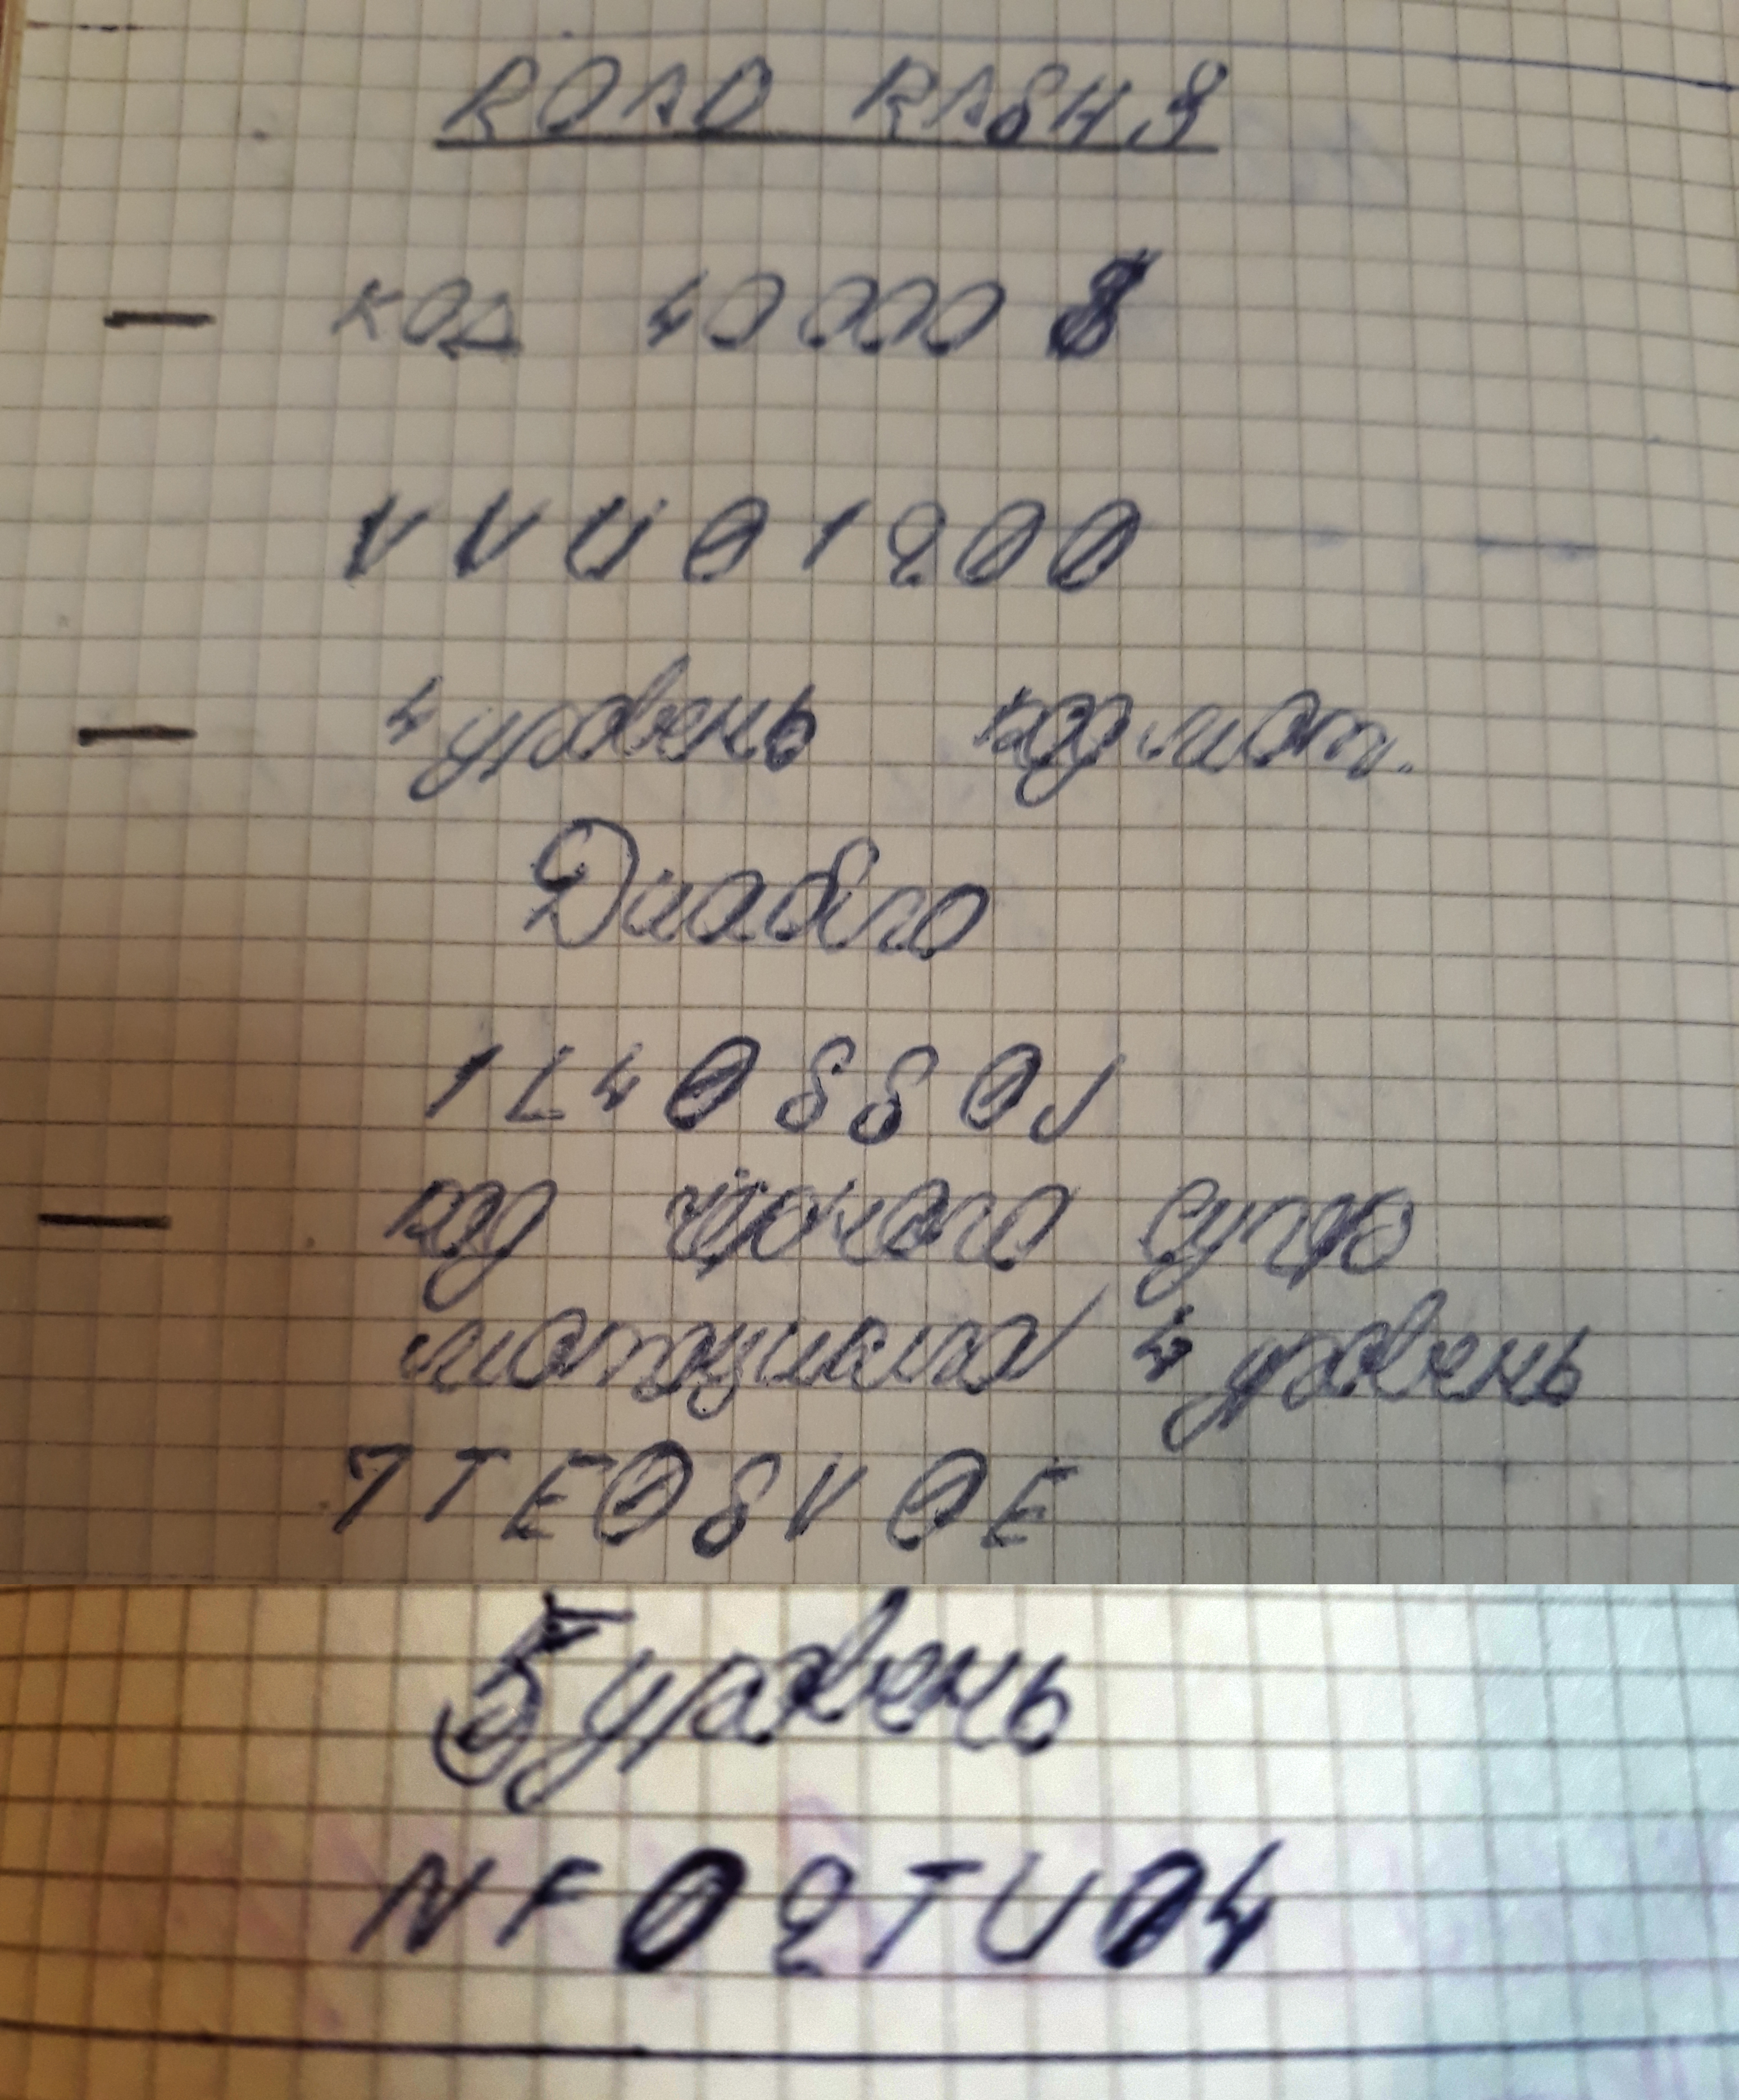 ROAD RASH 3
— КОД 40000 $
VVU01200
— 4 уровень код мот.
Диабло
1L40880J
— код чёрного супер
мотоцикла 4 уровень
7TE08V0E
5 уровень
NF02TU04